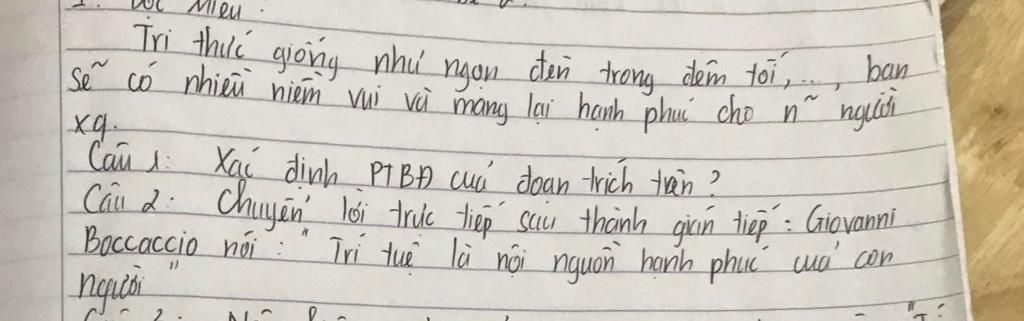 I. Đọc Hiểu:
Tri thức giống như ngọn đèn trong đêm tối, ..., bạn
sẽ có nhiều niềm vui và mang lại hạnh phúc cho n~ người
xq.
Câu 1: Xác định PTBĐ của đoạn trích trên?
Câu 2: Chuyển lời trực tiếp sau thành gián tiếp: Giovanni
Boccaccio nói: "Trí tuệ là cội nguồn hạnh phúc của con
người"